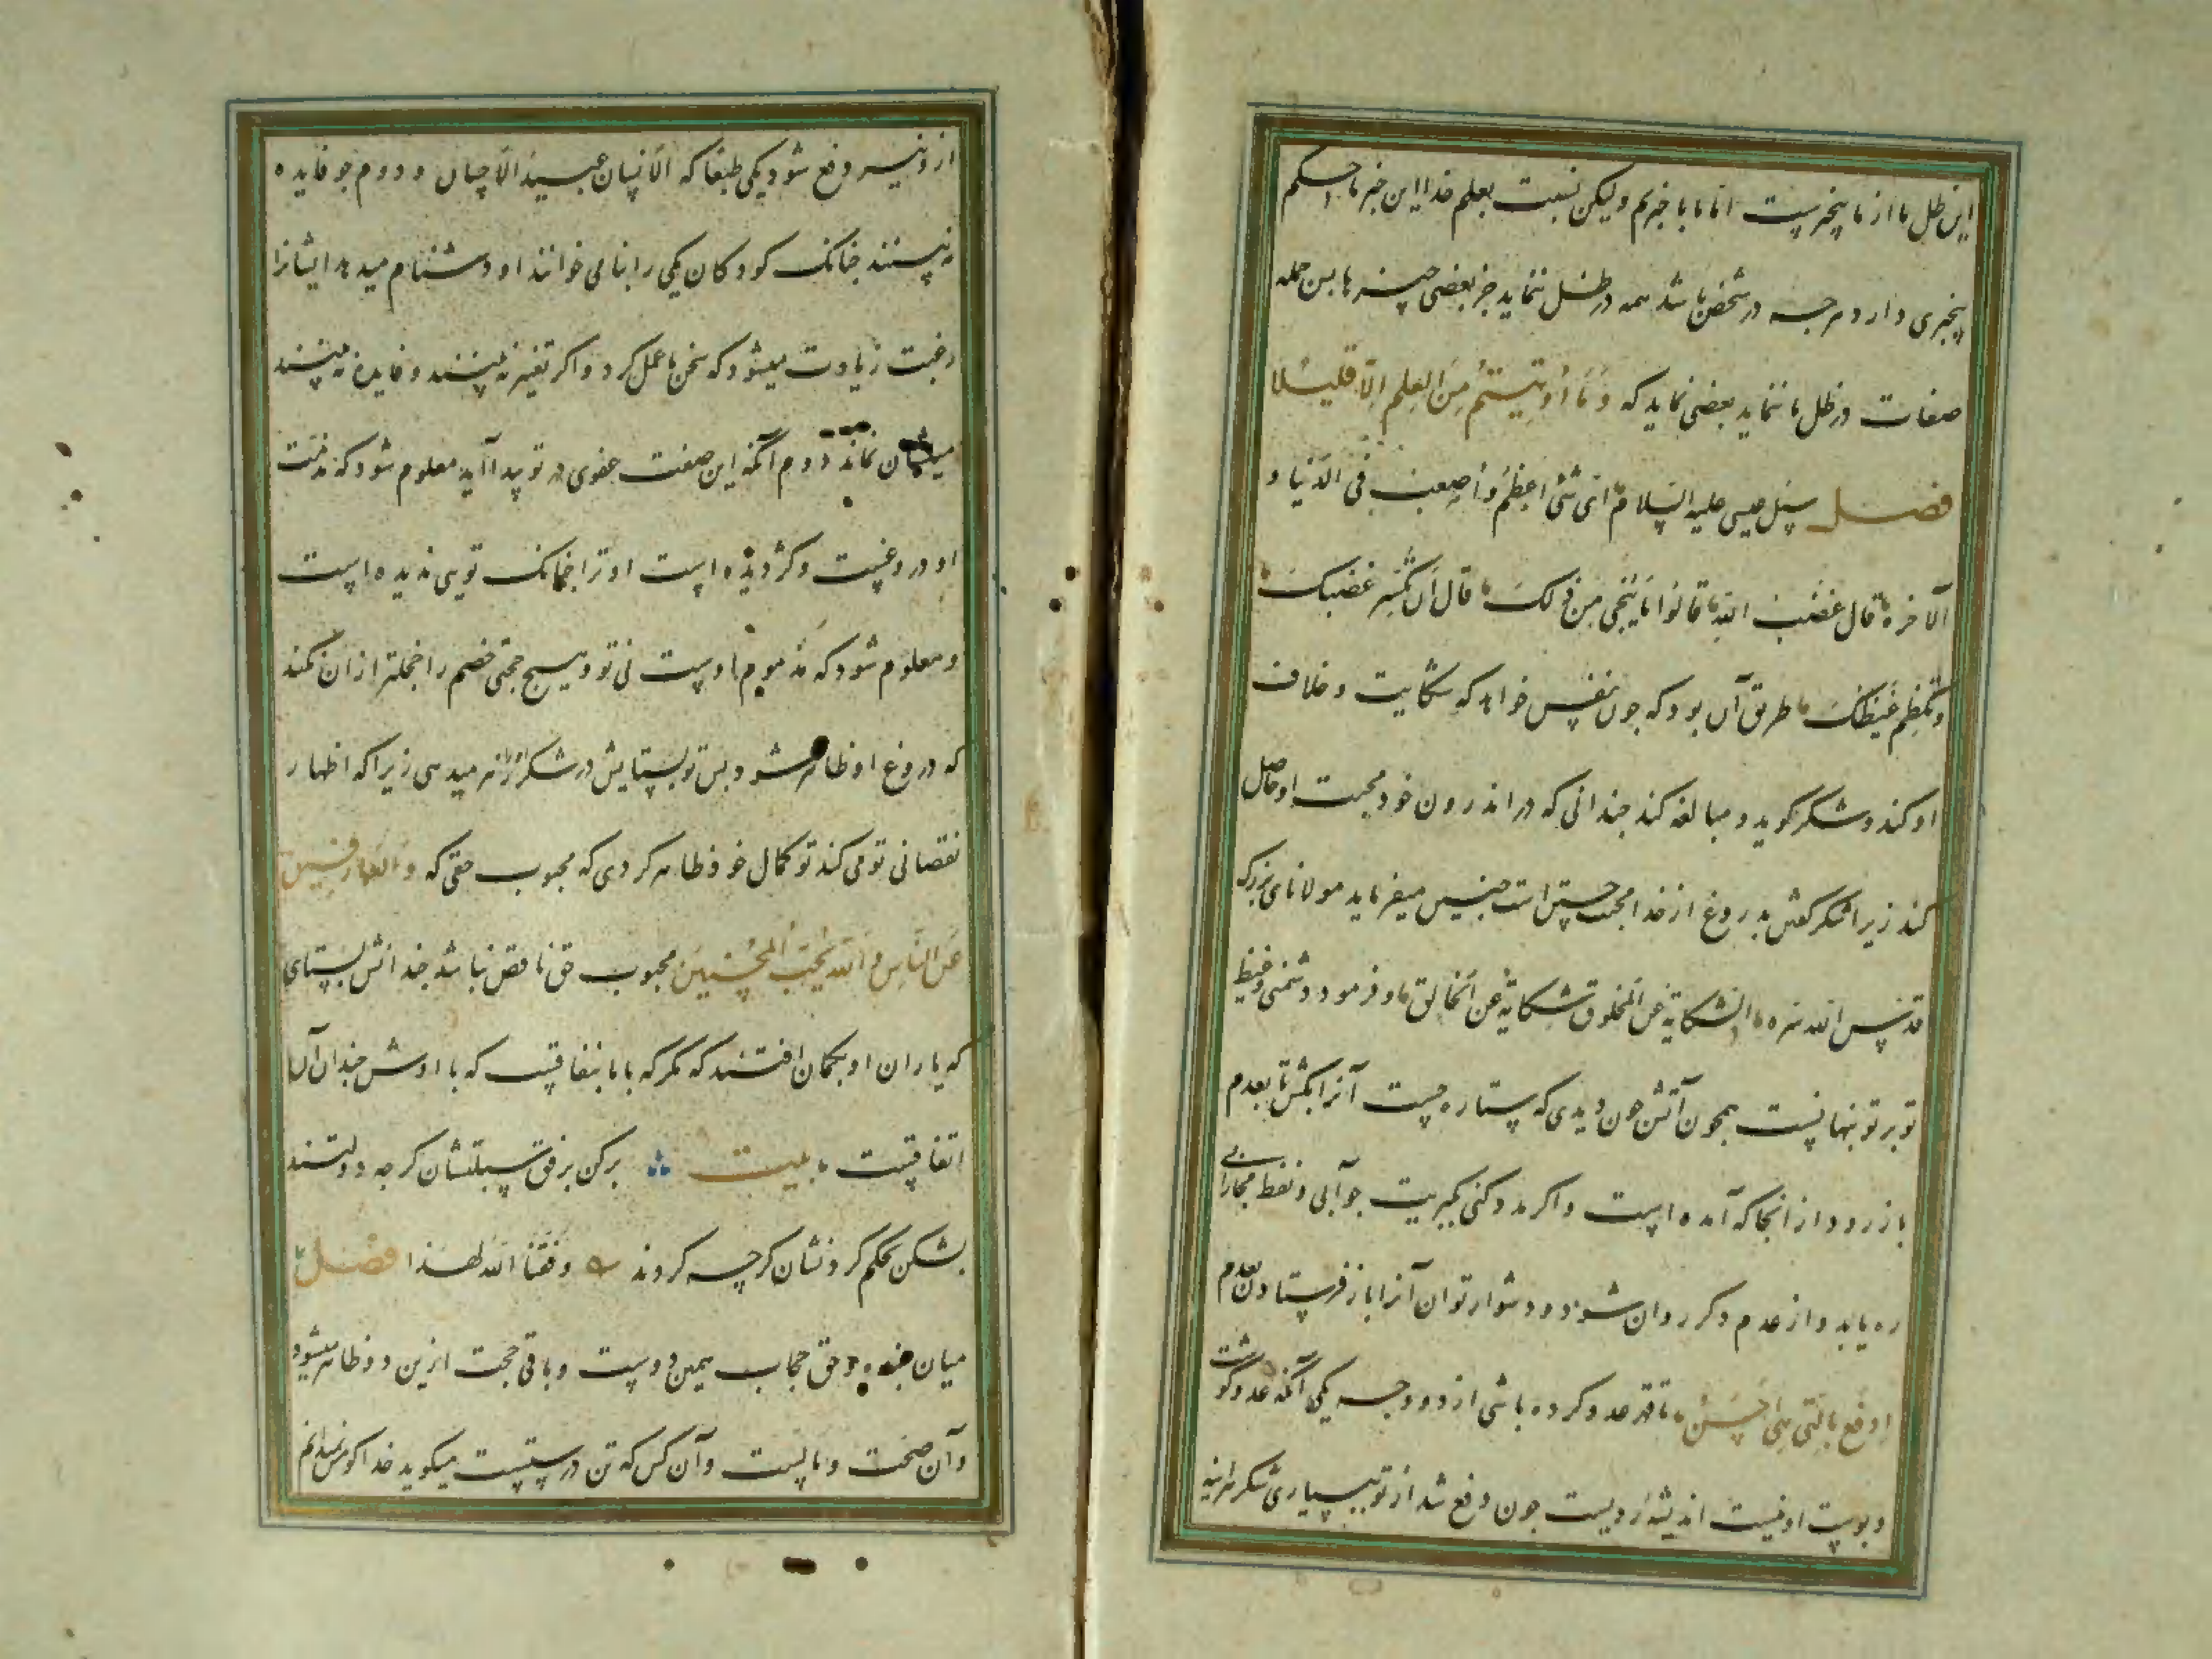 این ظل ما از ما بیخبرست اما ما با خبریم ولیکن نسبت بعلم خدا این خبر ما حکم
بیخبری دارد هرچه در شخص باشد همه در ظل ننماید جز بعضی چیزها پس جمله
صفات در ظل ما ننماید بعضی نماید که وَمَا أُوتِيتُمْ مِنَ الْعِلْمِ إِلَّا قَلِيلًا
فصل سئل عیسی علیه السلام ای شئ اعظم و اصعب فی الدنیا و
الآخرة قال غضب الله قالوا ما ینجی من ذلک قال ان تکسر غضبک
وتکظم غیظک طریق آن بود که چون نفس خواهد که شکایت و خلاف
او کند و شکر گوید و مبالغه کند چندانی که در اندرون خود محبت او حاصل
کند زیرا شکر گفتن بدروغ از خدا محبت جستن است چنین میفرماید مولانای بزرگ
قدس الله سره الشکایة عن المخلوق شکایة عن الخالق و فرمود دشمنی و غیظ
تو بر تو پنهانست همچون آتش چون دیدی که ستاره جست آنرا بکش تا بعدم
باز رود از آنجا که آمده است و اگر مدد کنی بکبریت جوابی و لفظ مجازاتی
ره یابد و از عدم دگر روان شود و دشوار توان آنرا باز فرستادن بعدم
ادْفَعْ بِالَّتِي هِيَ أَحْسَنُ تا قهر عدو کرده باشی از دو وجه یکی آنکه عدو گوشت
و پوست او نیست اندیشه ردیست چون دفع شد از تو بسیاری شکر هراینه
از و نیز دفع شود یکی طبعا که الانسان عبید الاحسان و دوم چو فایده
نبینند چنانک کودکان یکی را بنامی خوانند او دشنام میدهد ایشانرا
رغبت زیادت میشود که سخن ما عمل کرد و اگر تغییر نبینند و فایده نبینند
میلشان نماند دوم آنکه این صفت عفو در تو پیدا آید معلوم شود که مذمت
او دروغست و کژ دیده است او ترا چنانک توی ندیده است
و معلوم شود که مذموم اوست نی تو و هیچ حجتی خصم را خجلتر از آن نکند
که دروغ او ظاهر شود پس تو بستایش در شکر او زهر میدهی زیرا که اظهار
نقصانی تو می کند تو کمال خود ظاهر کردی که محبوب حقی که وَالْعَافِينَ
عَنِ النَّاسِ وَاللَّهُ يُحِبُّ الْمُحْسِنِينَ محبوب حق ناقص نباشد چندانش بستای
که یاران او بگمان افتند که مگر که با ما بنفاقست که با اوش چندان آن
اتفاقیست بیت برکن برفق سبلتشان گرچه دولتند
بشکن بحکم گردنشان گرچه گردند وفقنا الله لهذا فصل
میان بنده و حق حجاب همین دوست و باقی حجب ازین دو ظاهر میشود
و آن صحت و مالست و آن کس که تن درستست میگوید خدا کو من نمیدانم